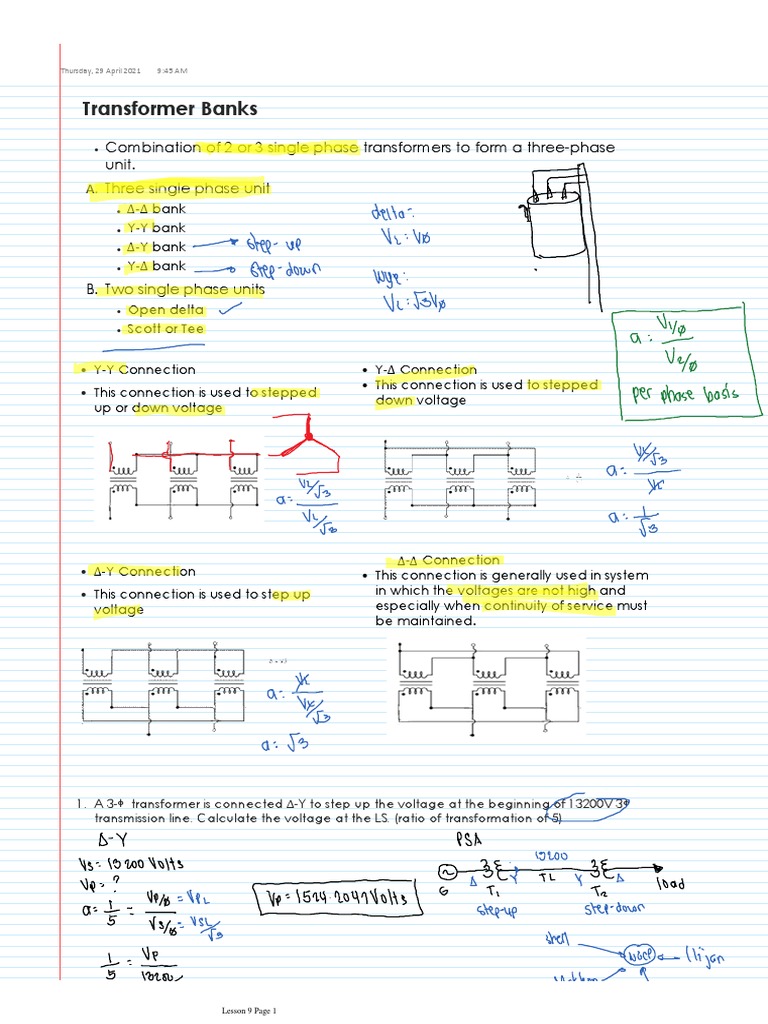 Thursday, 29 April 2021 9:45 AM
Transformer Banks
• Combination of 2 or 3 single phase transformers to form a three-phase
unit.
A. Three single phase unit
• Δ-Δ bank
• Y-Y bank
• Δ-Y bank → step-up
• Y-Δ bank → step-down
B. Two single phase units
• Open delta ✓
• Scott or Tee
delta:
VL = VØ
wye:
VL = √3VØ
a = V1/Ø / V2/Ø
per phase basis
• Y-Y Connection
• This connection is used to stepped
up or down voltage
• Y-Δ Connection
• This connection is used to stepped
down voltage
a = VL/√3 / VL/√3
a = VL/√3 / VL
a = 1/√3
• Δ-Y Connection
• This connection is used to step up
voltage
Δ-Δ Connection
• This connection is generally used in system
in which the voltages are not high and
especially when continuity of service must
be maintained.
a = VL / VL/√3
a = √3
1. A 3-Φ transformer is connected Δ-Y to step up the voltage at the beginning of 13200V 3Φ
transmission line. Calculate the voltage at the LS. (ratio of transformation of 5)
Δ-Y
Vs = 13200 Volts
Vp = ?
a = 1/5 = Vp/Ø / Vs/Ø = VPL / VSL/√3
1/5 = Vp / 13200/
Vp = 1524.2047 Volts
PSA
13200
G Δ T1 Y TL Y T2 Δ load
step-up step-down
shell
Ilijan
Lesson 9 Page 1